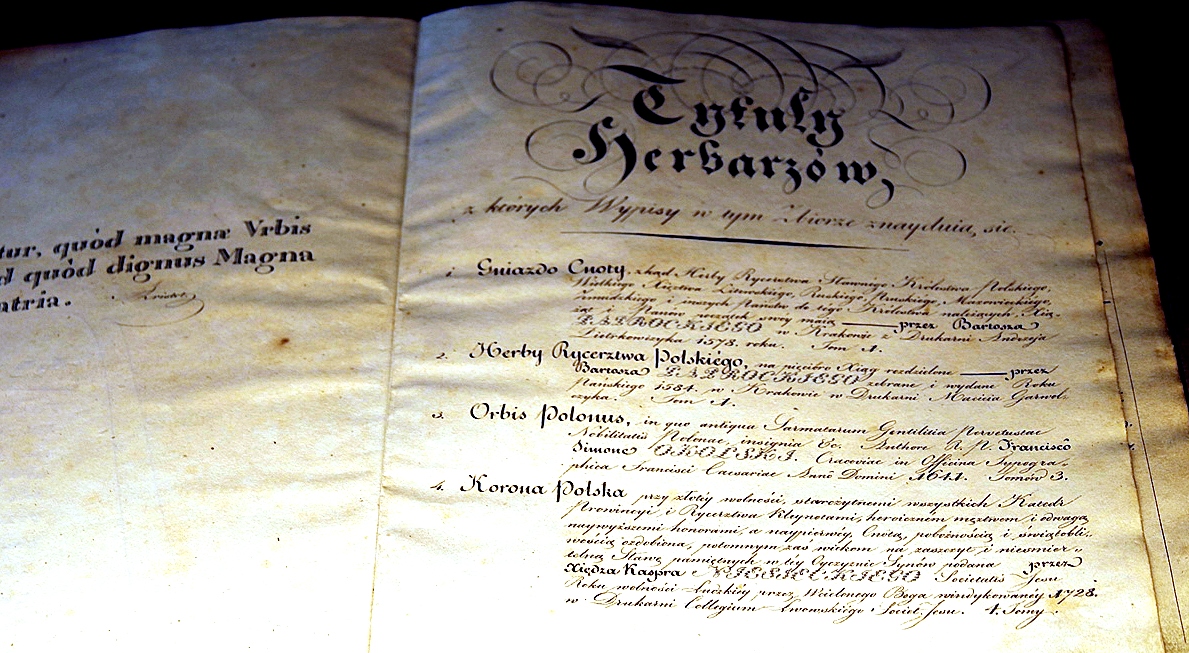 tur, quòd magnæ Vrbis
d quòd dignus Magna
atria.
Tytuły
Herbarzów,
z których Wypisy w tym Zbiorze znayduią się.
1. Gniazdo Cnoty, zkąd Herby Rycerstwa Sławnego Królestwa Polskiego,
Wielkiego Xięztwa Litewskiego, Ruskiego, Pruskiego, Mazowieckiego,
Żmudzkiego i inszych Państw do tego Królestwa należących, Xią-
żąt i Panów początek swóy maią — przez Bartosza
PAPROCKIEGO w Krakowie z Drukarni Andrzeja
Pietrkowczyka 1578. roku. Tom 1.
2. Herby Rycerztwa Polskiégo, na pięcioro Xiąg rozdzielone — przez
Bartosza PAPROCKIEGO zebrane i wydane Roku
Pańskiego 1584. w Krakowie w Drukarni Macieia Garwol-
czyka. Tom 1.
3. Orbis Polonus, in quo antiqua Sarmatarum Gentilitia Pervetustae
Nobilitatis Polonae insignia &c. Authore R. P. Francisco
Simone OKOLSKI. Cracoviae in Officina Typogra-
phica Francisci Caesariae Anno Domini 1641. Tomów 3.
4. Korona Polska przy złotéy wolności, starożytnemi wszystkich Katedr
Prowincyi i Rycerztwa Kleynotami, heroiczném męztwem i odwagą
naywyższemi honorami, a naypierwéy Cnotą, pobożnością i świątobli-
wością ozdobiona, potomnym zaś wiekom na zaszczyt i niesmier-
telną Sławę pamiętnych w téy Oyczyznie Synów podana przez
Xiędza Kaspra NIESIECKIEGO Societatis Jesu
Roku wolności Ludzkiéy przez Wcielonego Boga windykowanéy 1728.
w Drukarni Collegium Lwowskiégo Societ. Jesu. 4. Tomy.